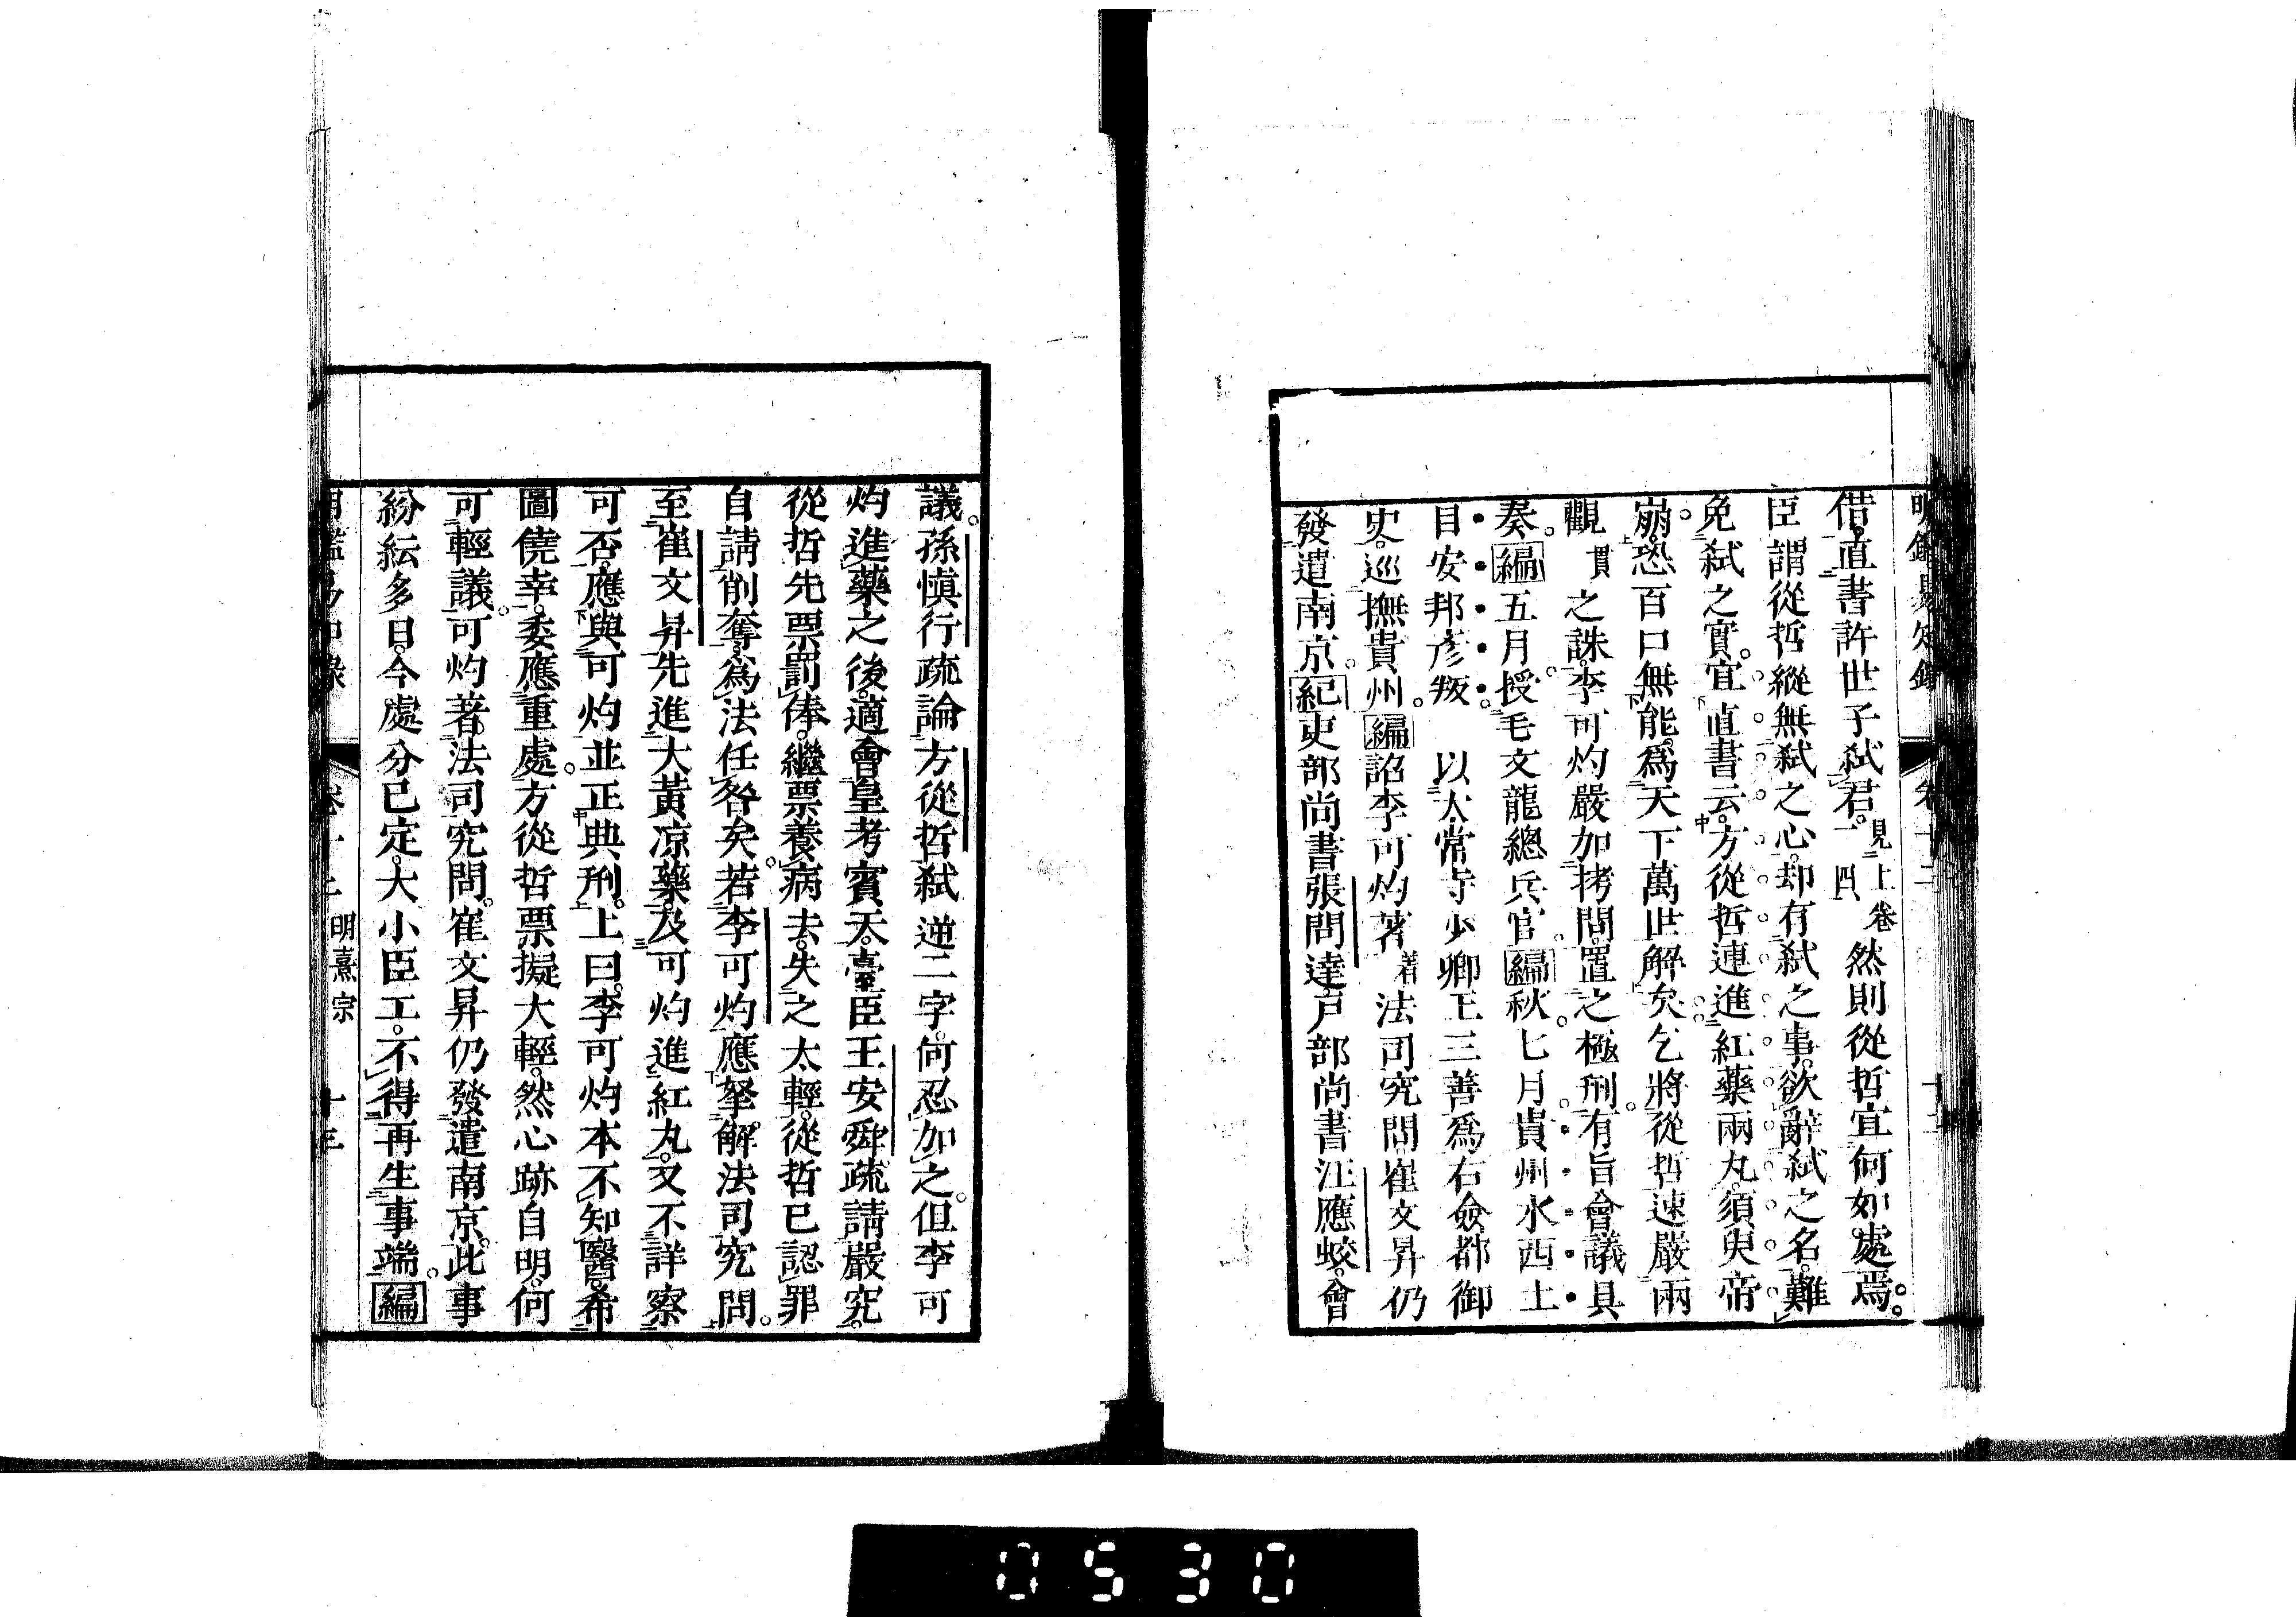 明鑑易知録　卷十二　十三
借直書許世子弑君見上卷一四然則從哲宜何如處焉
臣謂從哲縱無弑之心却有弑之事欲辭弑之名難
免弑之實宜直書云方從哲連進紅藥兩丸須臾帝
崩恐百口無能爲天下萬世解矣乞將從哲速嚴兩
觀貫之誅李可灼嚴加拷問置之極刑有旨會議具
奏編五月授毛文龍總兵官編秋七月貴州水西土
目安邦彥叛　以太常寺少卿王三善爲右僉都御
史巡撫貴州編詔李可灼著着法司究問崔文昇仍
發遣南京紀吏部尚書張問達戸部尚書汪應蛟會
議孫愼行疏論方從哲弑逆二字何忍加之但李可
灼進藥之後適會皇考賓天臺臣王安舜疏請嚴究
從哲先票罰俸繼票養病去失之太輕從哲已認罪
自請削奪爲法任咎矣若李可灼應拏解法司究問
至崔文昇先進大黃凉藥及可灼進紅丸又不詳察
可否應與可灼並正典刑上曰李可灼本不知醫希
圖僥幸委應重處方從哲票擬大輕然心跡自明何
可輕議可灼著法司究問崔文昇仍發遣南京此事
紛紜多日今處分已定大小臣工不得再生事端編
明鑑易知録　卷十二　明熹宗　十三
0530